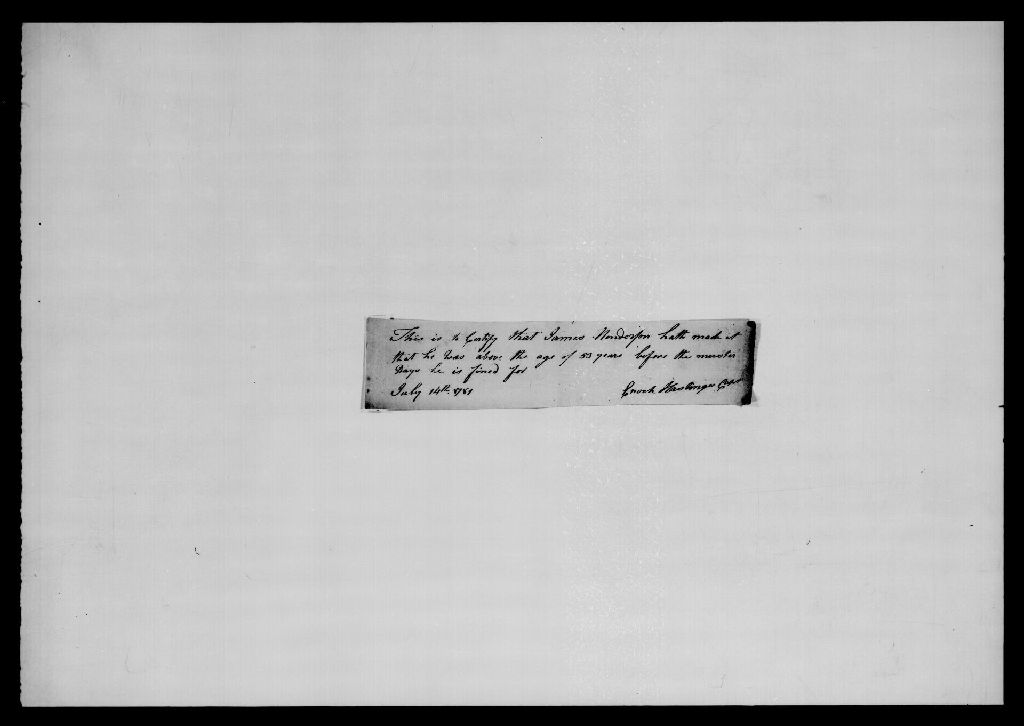 This is to Certify that James Henderson hath made it
that he was above the age of 53 years before the muster
Days he is fined for
July 14th 1781
Enoch Hastings Capt